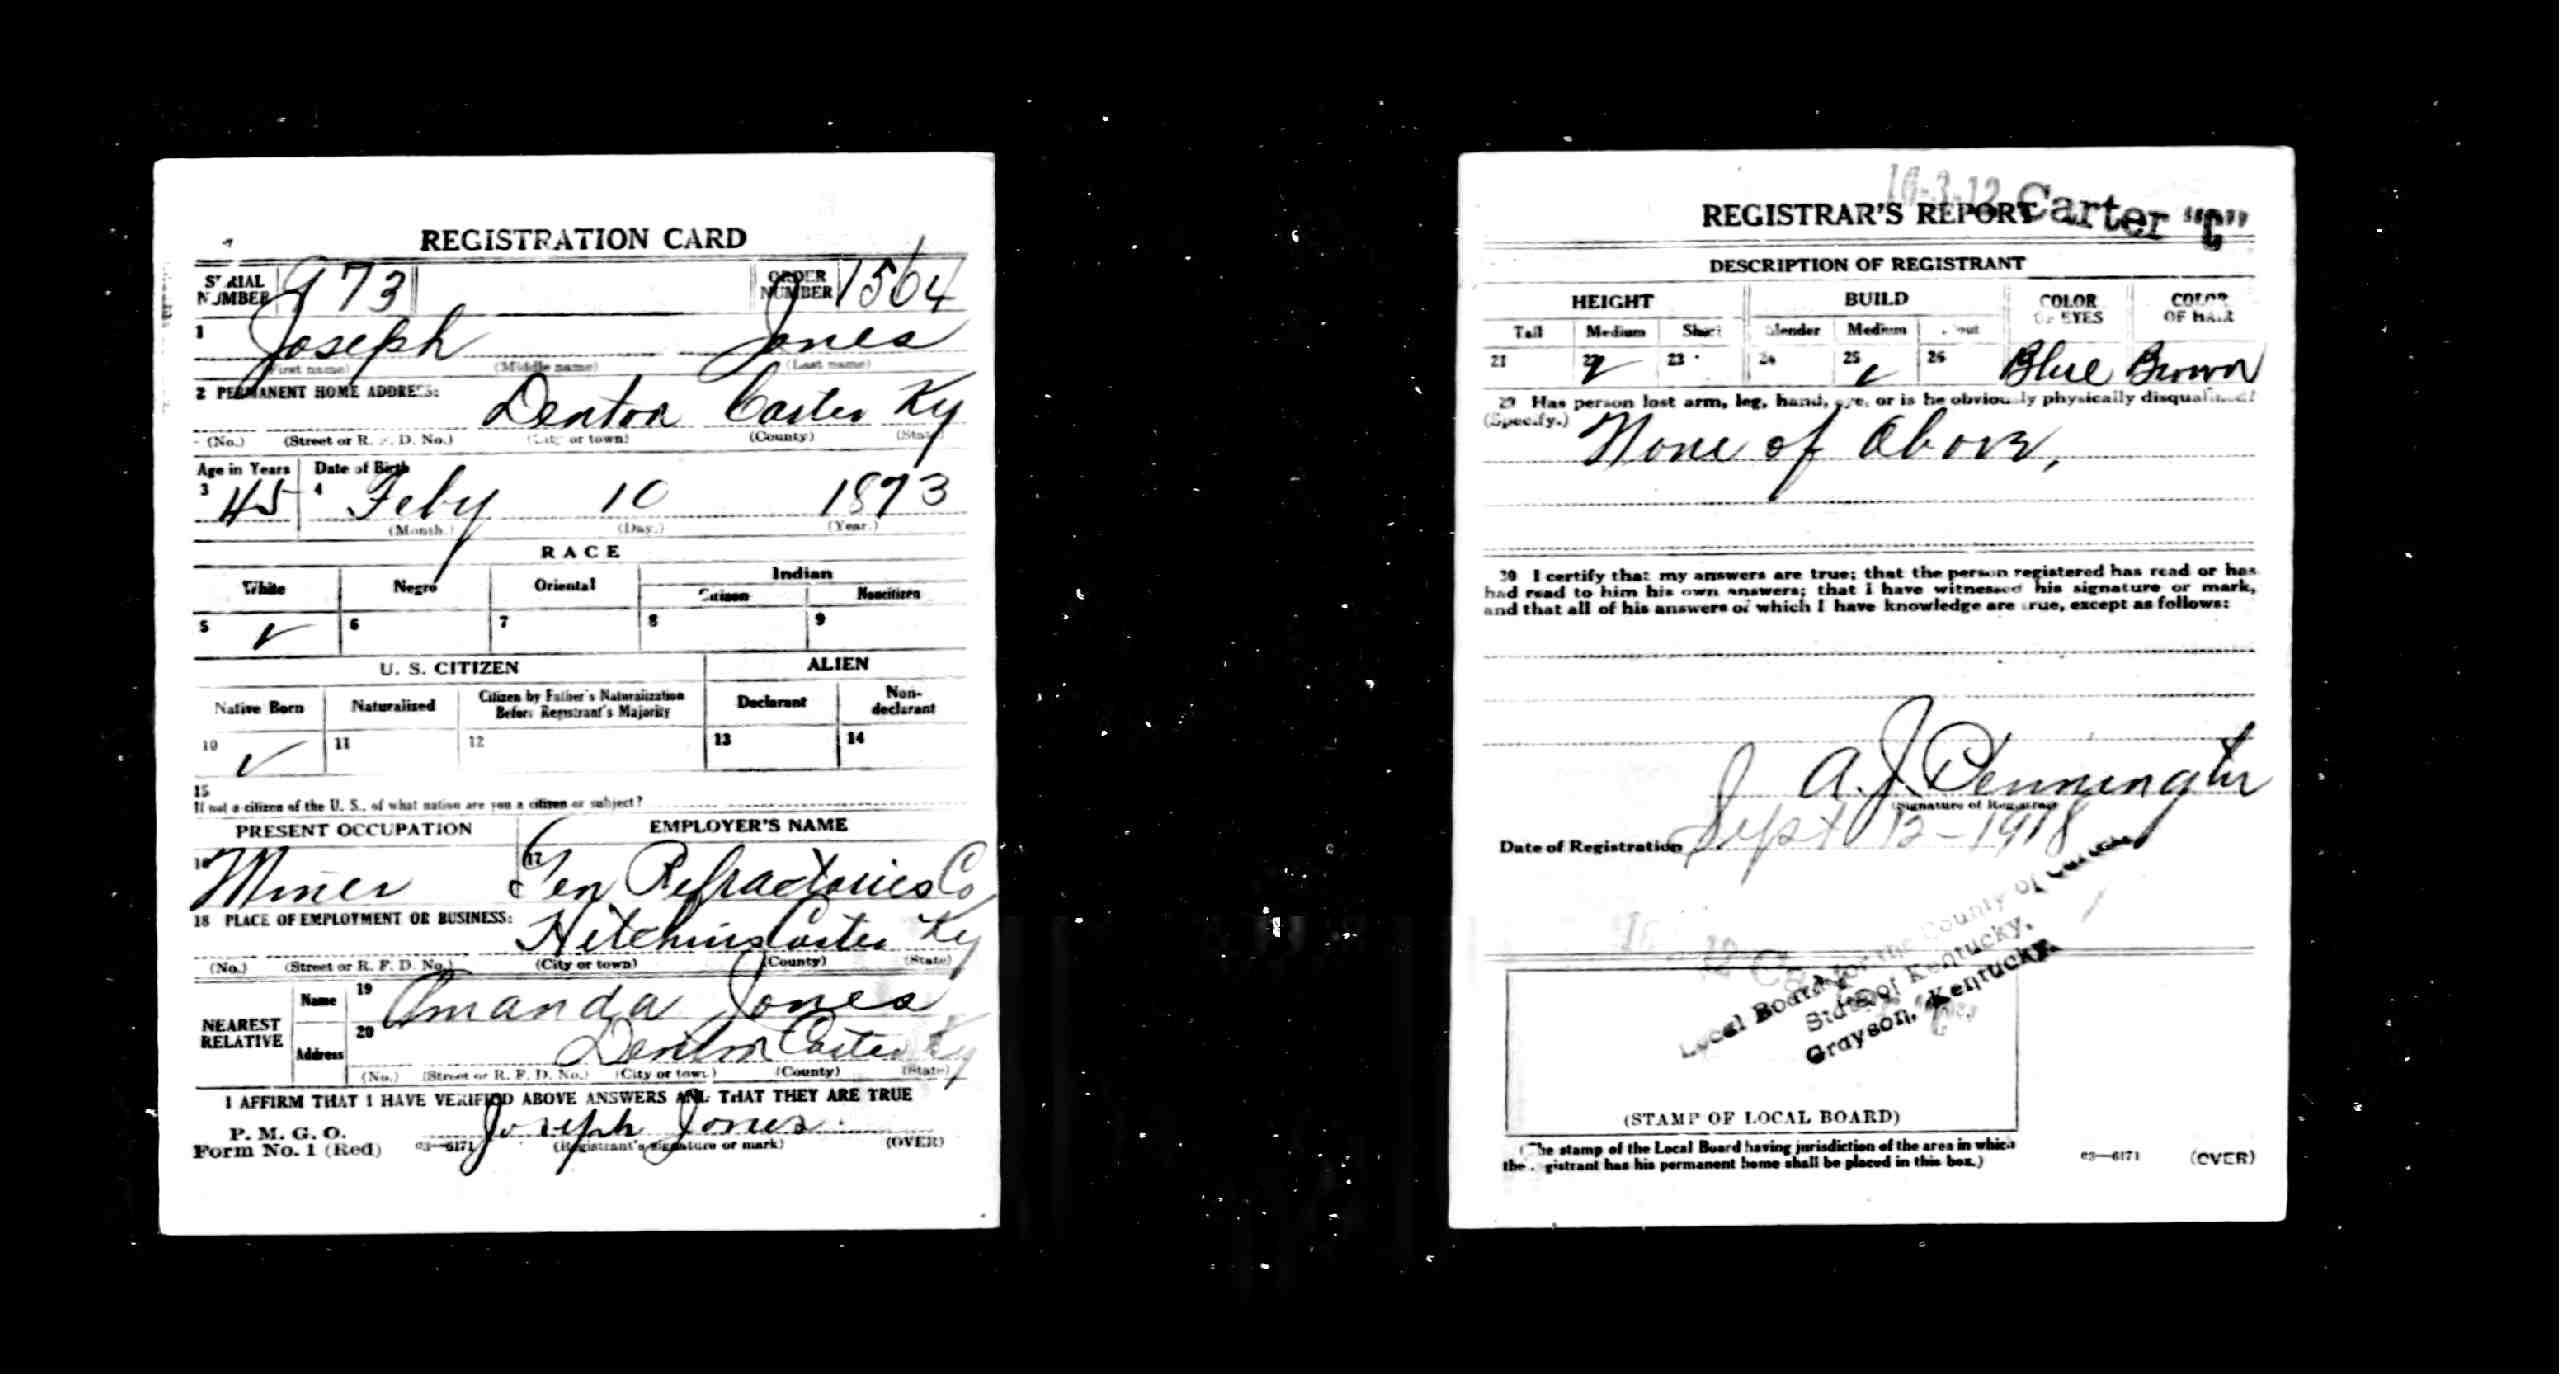 REGISTRATION CARD
SERIAL NUMBER 973 ORDER NUMBER 1564
1 Joseph Jones
(First name) (Middle name) (Last name)
2 PERMANENT HOME ADDRESS: Denton Carter Ky
(No.) (Street or R. F. D. No.) (City or town) (County) (State)
Age in Years Date of Birth
3 45 4 Feby 10 1873
(Month.) (Day.) (Year.)
RACE
White Negro Oriental Indian
Citizen Noncitizen
5 ✓ 6 7 8 9
U. S. CITIZEN ALIEN
Native Born Naturalized Citizen by Father's Naturalization Before Registrant's Majority Declarant Non-declarant
10 ✓ 11 12 13 14
15
If not a citizen of the U. S., of what nation are you a citizen or subject?
PRESENT OCCUPATION EMPLOYER'S NAME
16 Miner 17 Gen Refractories Co
18 PLACE OF EMPLOYMENT OR BUSINESS: Hitchins Carter Ky
(No.) (Street or R. F. D. No.) (City or town) (County) (State)
NEAREST RELATIVE Name 19 Amanda Jones
Address 20 Denton Carter Ky
(No.) (Street or R. F. D. No.) (City or town) (County) (State)
I AFFIRM THAT I HAVE VERIFIED ABOVE ANSWERS AND THAT THEY ARE TRUE
P. M. G. O.
Form No. 1 (Red) 03—6171 Joseph Jones
(Registrant's signature or mark) (OVER)
REGISTRAR'S REPORT Carter "C"
DESCRIPTION OF REGISTRANT
HEIGHT BUILD COLOR OF EYES COLOR OF HAIR
Tall Medium Short Slender Medium Stout
21 22 ✓ 23 24 25 ✓ 26 Blue Brown
29 Has person lost arm, leg, hand, eye, or is he obviously physically disqualified?
(Specify.) None of Above,
30 I certify that my answers are true; that the person registered has read or has
had read to him his own answers; that I have witnessed his signature or mark,
and that all of his answers of which I have knowledge are true, except as follows:
A. J. Pennington
(Signature of Registrar)
Date of Registration Sept 12-1918
Local Board for the County of Carter,
State of Kentucky,
Grayson, Kentucky.
(STAMP OF LOCAL BOARD)
(The stamp of the Local Board having jurisdiction of the area in which
the registrant has his permanent home shall be placed in this box.)
03—6171 (OVER)